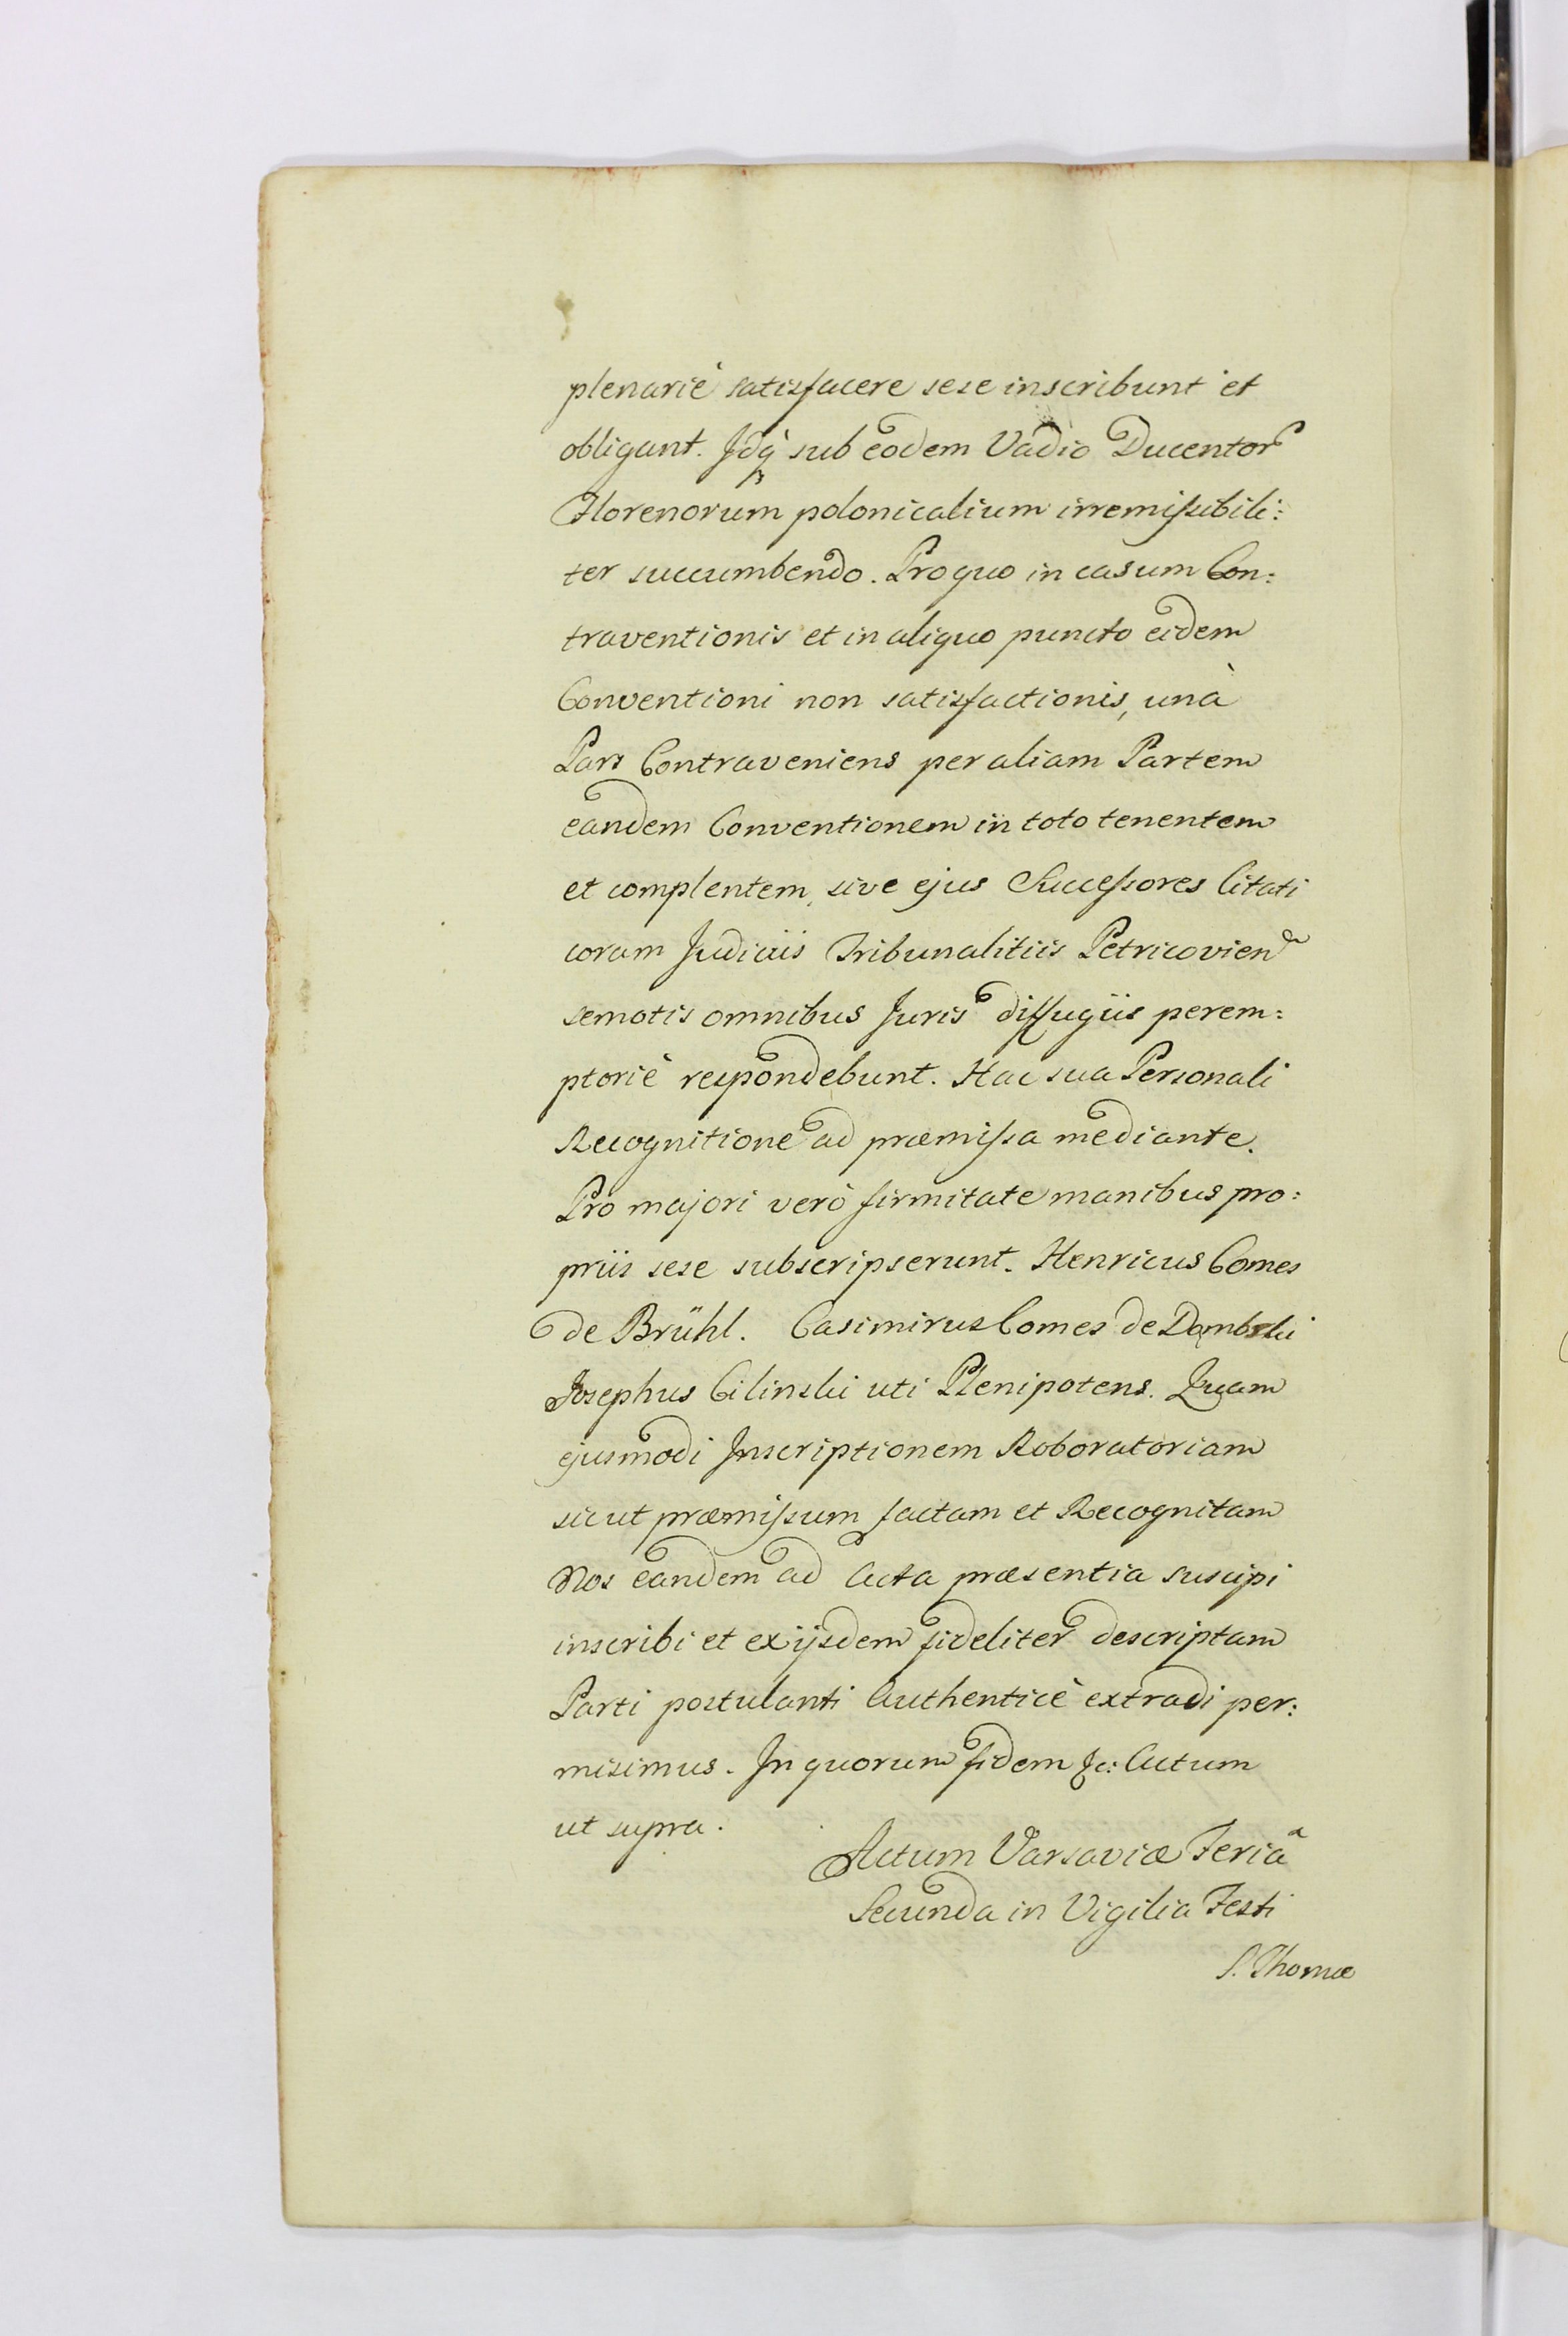 plenariè satisfacere sese inscribunt et
obligant. Jdq̀ sub eodem Vadio Ducentor
Florenorum polonicalium irremiſsibili:
ter succumbendo. Pro quo in casum Con:
traventionis et in aliquo puncto eidem
Conventioni non satisfactionis, unà
Pars Contraveniens per aliam Partem
eandem Conventionem in toto tenentem
et complentem, sive ejus Succeſsores Citati
coram Judiciis Tribunalitiis Petricovien
semotis omnibus Juris diffugiis perem:
ptoriè respondebunt. Hac sua Personali
Recognitione ad præmiſsa mediante.
Pro majori verò firmitate manibus pro:
priis sese subscripserunt. Henricus Comes
de Brühl. Casimirus Comes de Dombski
Josephus Cilinski uti Plenipotens. Quam
ejusmodi Jnscriptionem Roboratoriam
sicut præmiſsum factam et Recognitam
Nos eandem ad Acta præsentia suscipi
inscribi et ex ijsdem fideliter descriptam
Parti postulanti Authenticè extradi per:
misimus. Jn quorum fidem &c: Actum
ut supra.
Actum Varsaviæ Feriâ
Secunda in Vigilia Festi
S. Thomæ